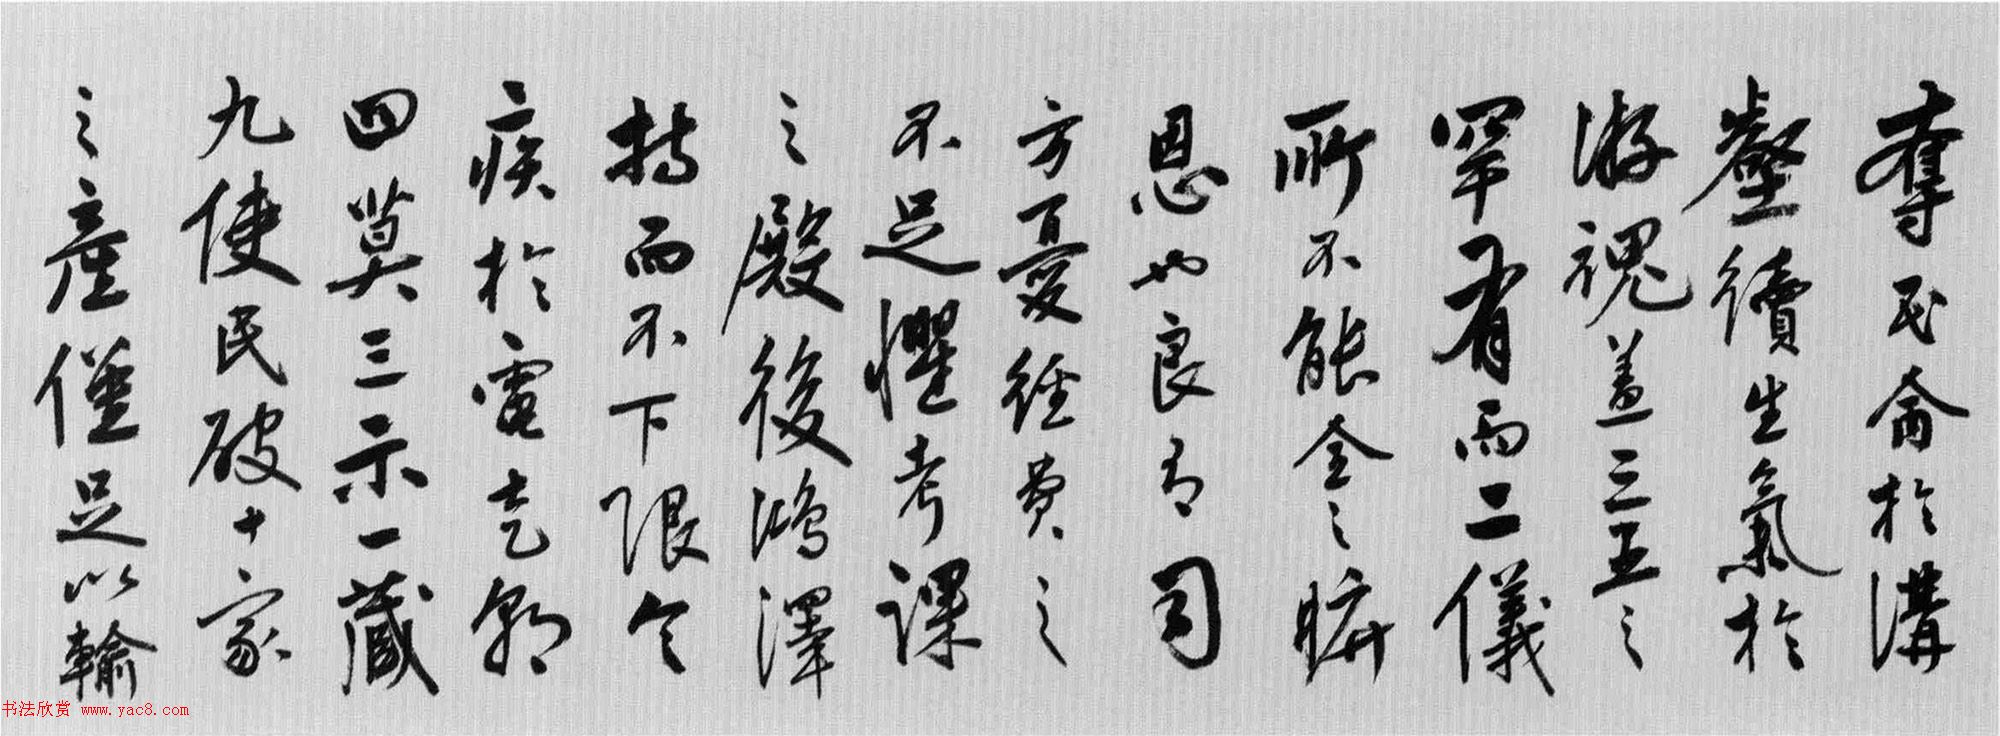 奪民命於溝
壑續生氣於
游魂蓋三五之
罕有而二儀
所不能全之曠
恩也良有司
方憂經費之
不足懼考課
之殿後鴻澤
持而不下限令
疾於電走朝
四莫三示一藏
九使民破十家
之產僅足以輸
书法欣赏 www.yac8.com